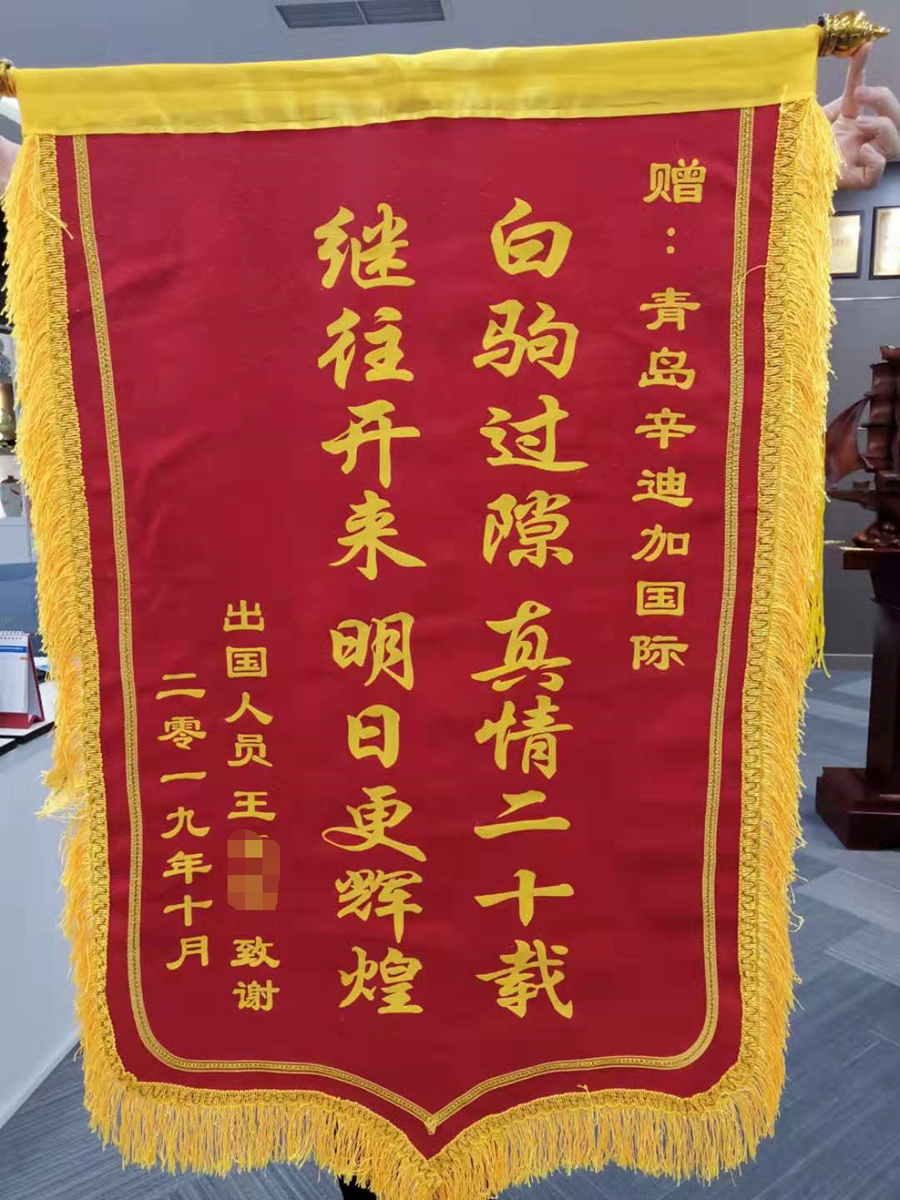 赠：青岛辛迪加国际
白驹过隙 真情二十载
继往开来 明日更辉煌
出国人员 王 致谢
二零一九年十月